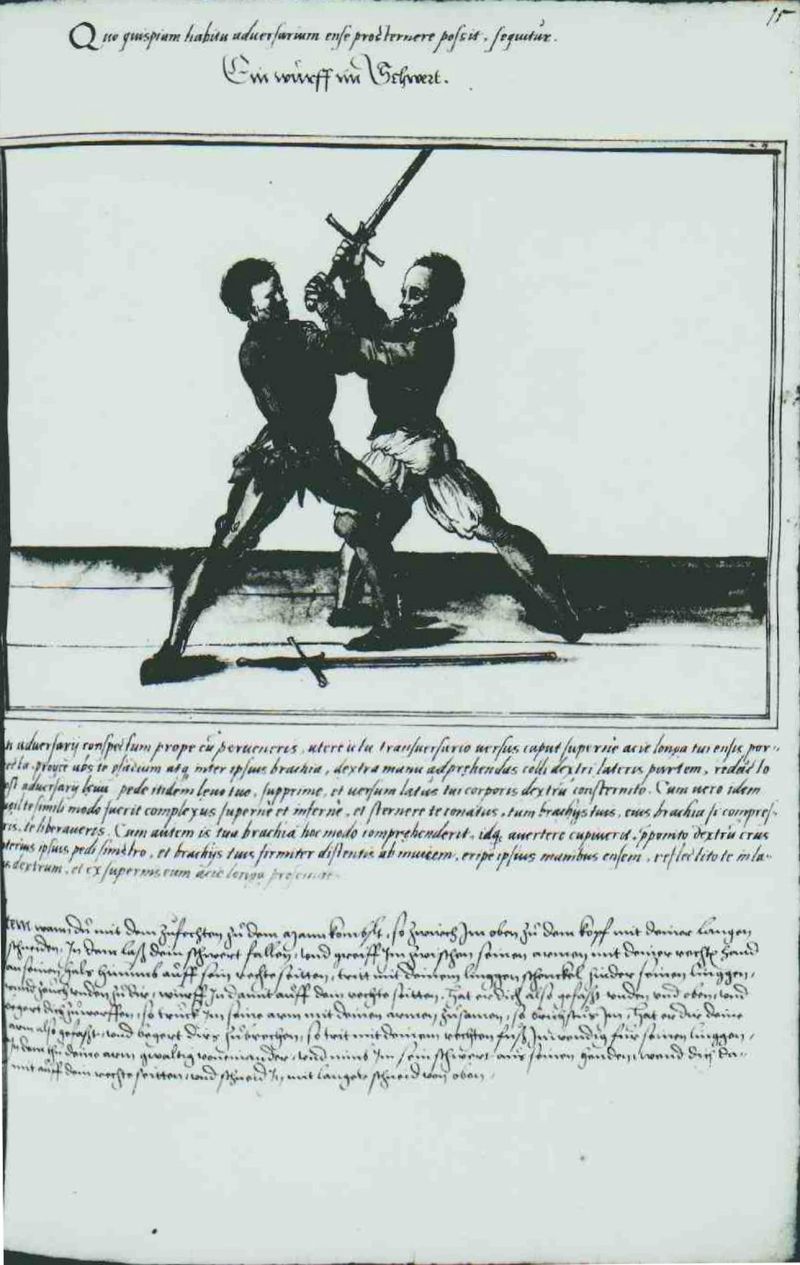 15
Quo quispiam habitu adversarium ense prosternere possit, sequitur.
Ein wurff im Schwert.
adversarij conspectum prope cum perveneris, utere ictu transversario versus caput superne acie longa tui ensis por-
recta. proijce abs te gladium atque inter ipsius brachia, dextra manu adprehendas colli dextri lateris partem, reducto
post adversarij laevum pede itidem laevo tuo, supprime, et versum latus tui corporis dextrum consternito. Cum vero idem
simili modo fuerit complexus superne et inferne, et sternere te conatus, tum brachijs tuis, eius brachia si compres-
ris, te liberaveris. Cum autem is tua brachia hoc modo comprehenderit, idque avertere cupiverit, opponito dextrum crus
interius ipsius pedi sinistro, et brachijs tuis firmiter distentis ab invicem, eripe ipsius manibus ensem, reflectito te in la-
dextrum, et ex supernis eum acie longa
Item wann du mit dem zufechten zu dem Mann kombst, so zwirch Im oben zu dem kopf mit deiner langen
schneiden, In dem laß dein schwert fallen, unnd greiff Im zwischen seinen armen mit deiner rechte hand
an seinen hals himmb auff sein rechte seitten, tritt mit deinem linggen schenckel hinder seinen linggen,
unnd unden, wurff In damit auff dein rechte seitten. Hat er dich also gefasst unden und oben, und
begert dich zuwerffen, so truck Im seine arm mit deinen armen zusamen, so brichstus Im, Hat er dir deine
arm also gefasst, und begert dirs zubrechen, so trit mit deinem rechten fuß Inwendig für seinen linggen,
In dem thu deine arm gwaltig voneinander, und nimb Im sein schwert aus seinen henden, wend dich da-
mit auff dein rechte seitten, und schneid In mit langer schneid von oben.